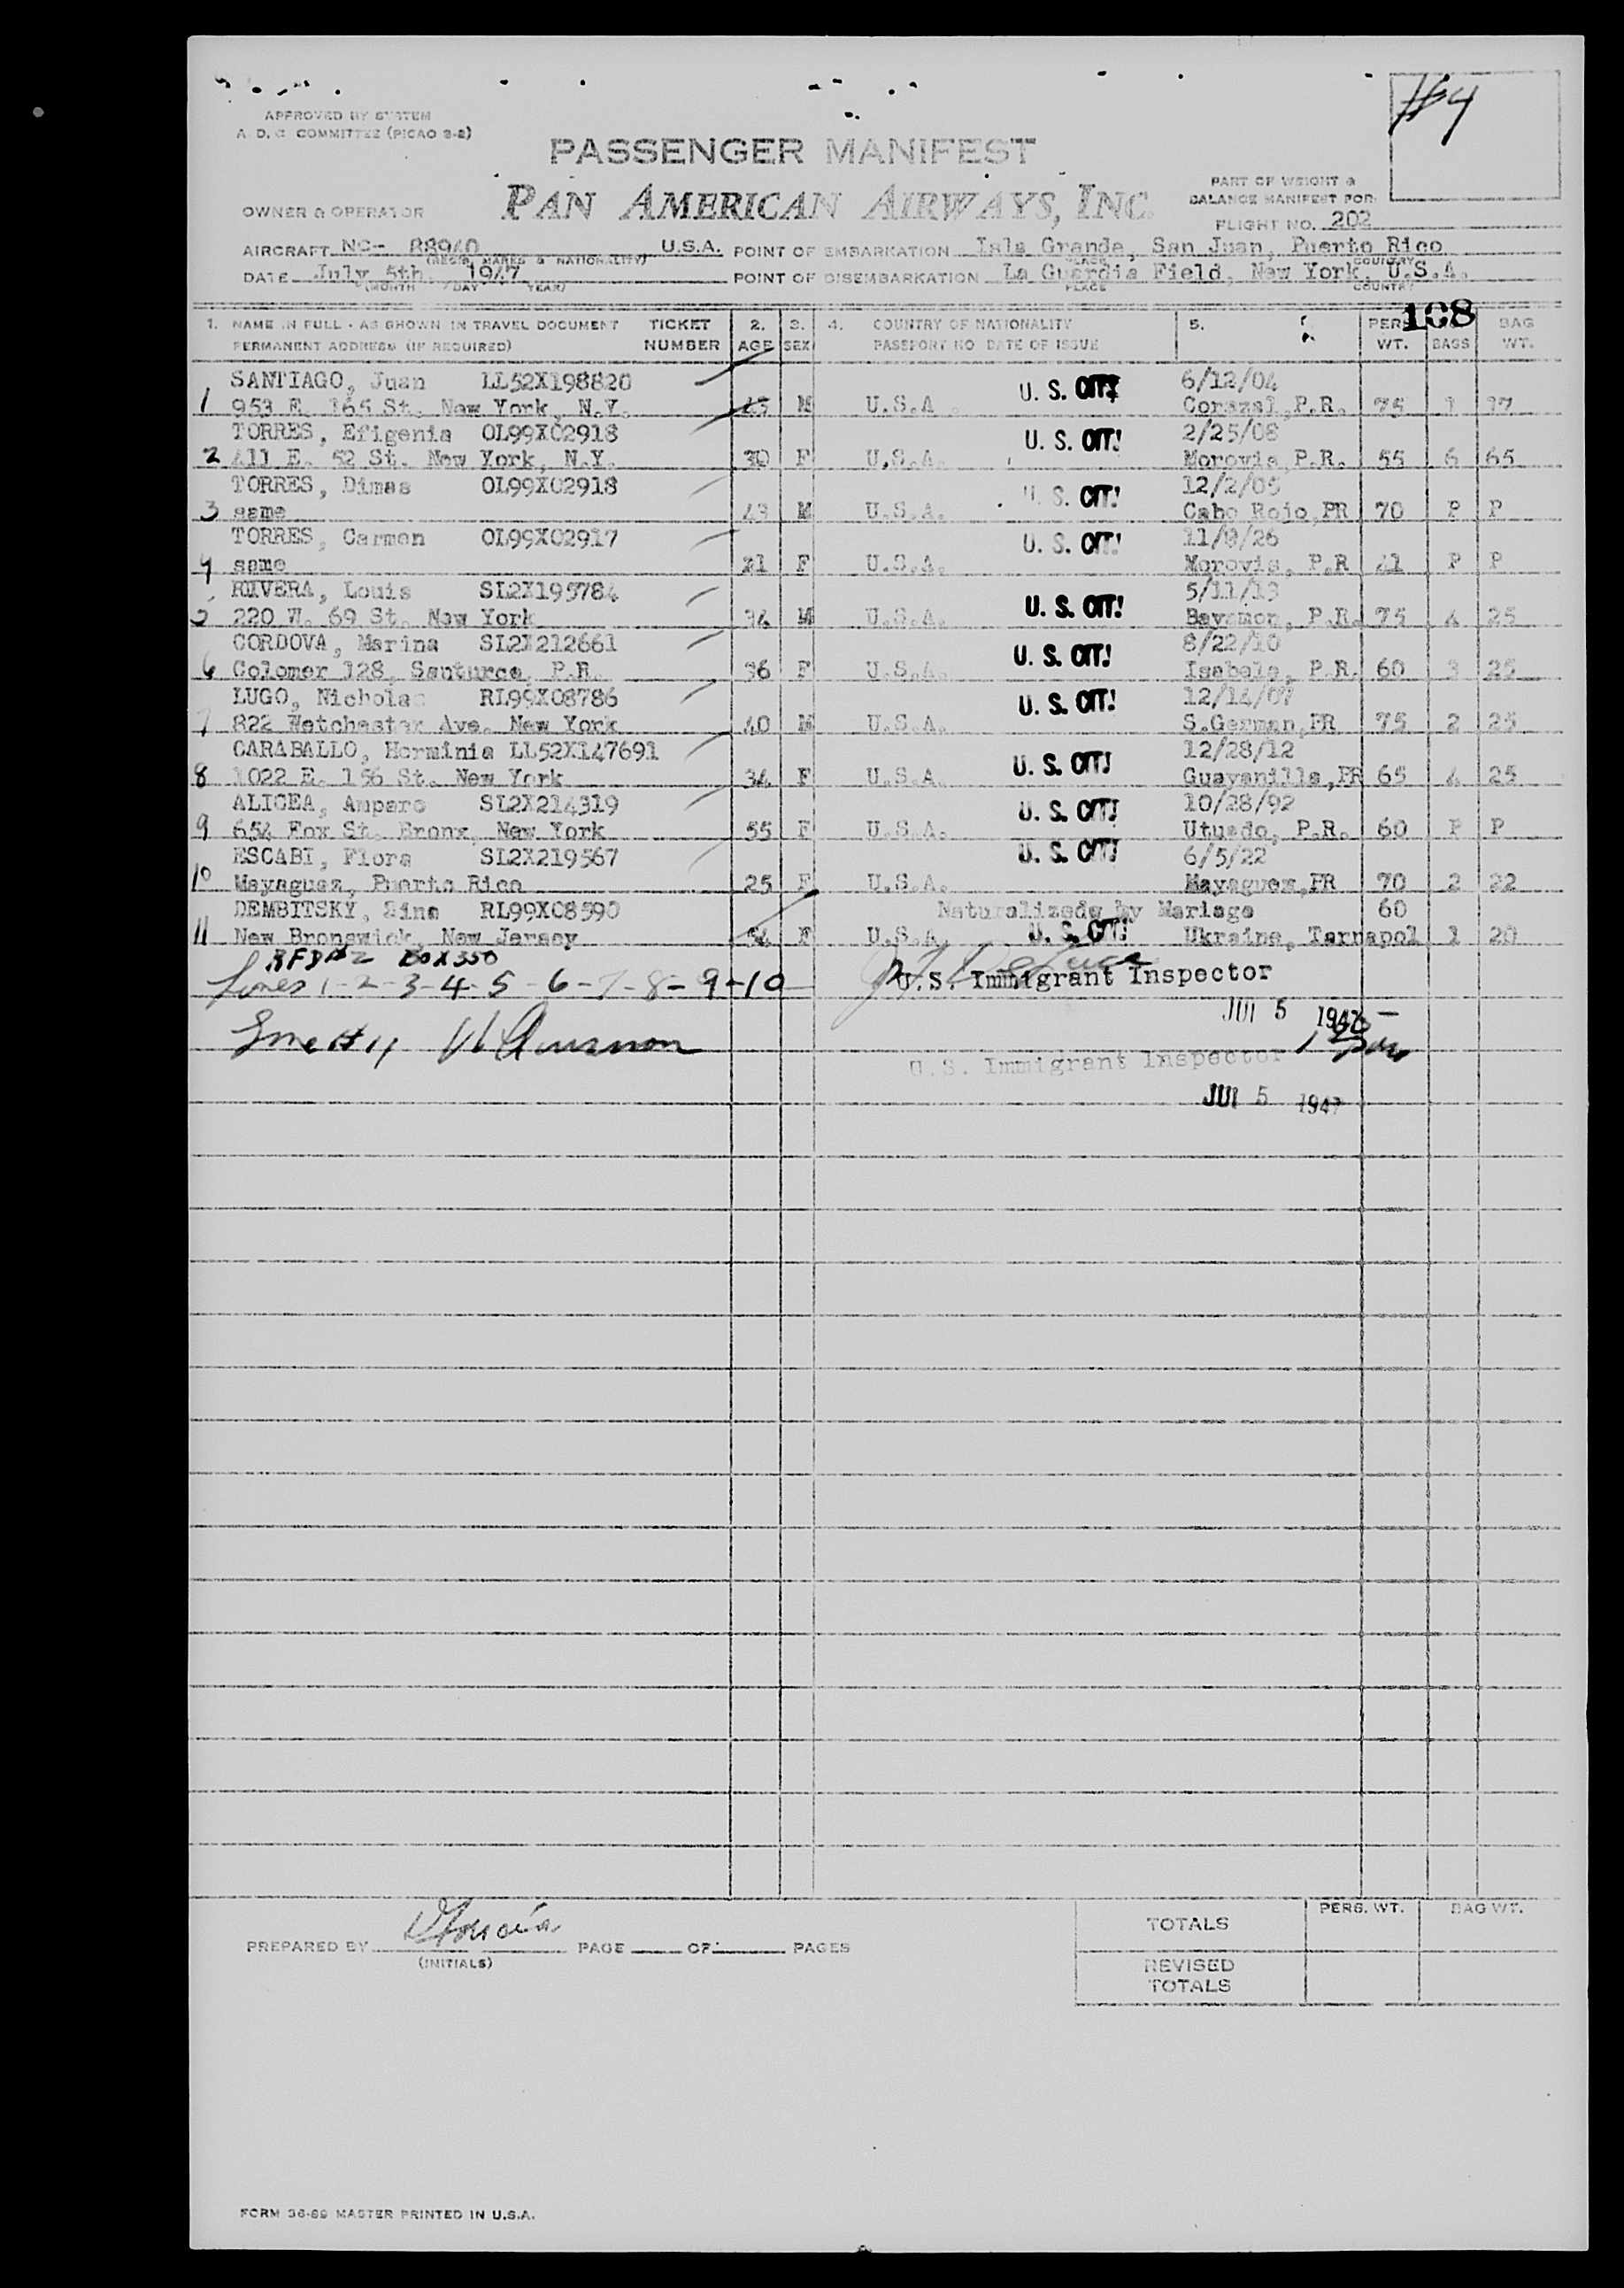 #4
APPROVED BY SYSTEM
A.D.C COMMITTEE (PICAO 3-2)
PASSENGER MANIFEST
PAN AMERICAN AIRWAYS, INC.
PART OF WEIGHT &
BALANCE MANIFEST FOR
OWNER & OPERATOR
FLIGHT NO. 202
AIRCRAFT NC- 88940 U.S.A. POINT OF EMBARKATION Isla Grande, San Juan, Puerto Rico
(REGIS. MARKS & NATIONALITY) PLACE COUNTRY
DATE July 5th, 1947 POINT OF DISEMBARKATION La Guardia Field, New York, U.S.A.
(MONTH DAY YEAR) PLACE COUNTRY
108
1. NAME IN FULL - AS SHOWN IN TRAVEL DOCUMENT TICKET 2. 3. 4. COUNTRY OF NATIONALITY 5. PERS. BAG
PERMANENT ADDRESS (IF REQUIRED) NUMBER AGE SEX PASSPORT NO DATE OF ISSUE WT. BAGS WT.
SANTIAGO, Juan LL52X198820 U. S. CIT. 6/12/04
1 953 E. 165 St. New York, N.Y. 43 M U.S.A. Corozal, P.R. 75 1 17
TORRES, Efigenia OL99X02918 U. S. CIT. 2/25/08
2 411 E. 52 St. New York, N.Y. 39 F U.S.A. Morovis, P.R. 55 6 65
TORRES, Dimas OL99X02918 U. S. CIT. 12/2/05
3 same 43 M U.S.A. Cabo Rojo, PR 70 P P
TORRES, Carmen OL99X02917 U. S. CIT. 11/9/26
4 same 21 F U.S.A. Morovis, P.R 41 P P
RIVERA, Louis SL2X195784 U. S. CIT. 5/11/13
5 220 W. 69 St. New York 34 M U.S.A. Bayamon, P.R. 75 4 25
CORDOVA, Marina SL2X212661 U. S. CIT. 8/22/10
6 Colomer 128, Santurce, P.R. 36 F U.S.A. Isabela, P.R. 60 3 25
LUGO, Nicholas RL99X08786 U. S. CIT. 12/14/07
7 822 Wetchester Ave. New York 40 M U.S.A. S.German, PR 75 2 25
CARABALLO, Herminia LL52X147691 U. S. CIT. 12/28/12
8 1022 E. 156 St. New York 34 F U.S.A. Guayanilla, PR 65 4 25
ALICEA, Amparo SL2X214319 U. S. CIT. 10/28/92
9 654 Fox St. Bronx, New York 55 F U.S.A. Utuado, P.R. 60 P P
ESCABI, Flora SL2X219567 U. S. CIT. 6/5/22
10 Mayaguez, Puerto Rico 25 F U.S.A. Mayaguez, PR 70 2 22
DEMBITSKY, Zina RL99X08590 Naturalizede by Mariage 60
11 New Bronswick, New Jersey 54 F U.S.A. U. S. CIT. Ukraine, Tarnapol 1 20
RFD#2 BOX350
Lines 1-2-3-4-5-6-7-8-9-10 U.S. Immigrant Inspector
JUL 5 1947
Line #11
U.S. Immigrant Inspector
JUL 5 1947
PREPARED BY PAGE OF PAGES
(INITIALS)
PERS. WT. BAG WT.
TOTALS
REVISED
TOTALS
FORM 36-89 MASTER PRINTED IN U.S.A.